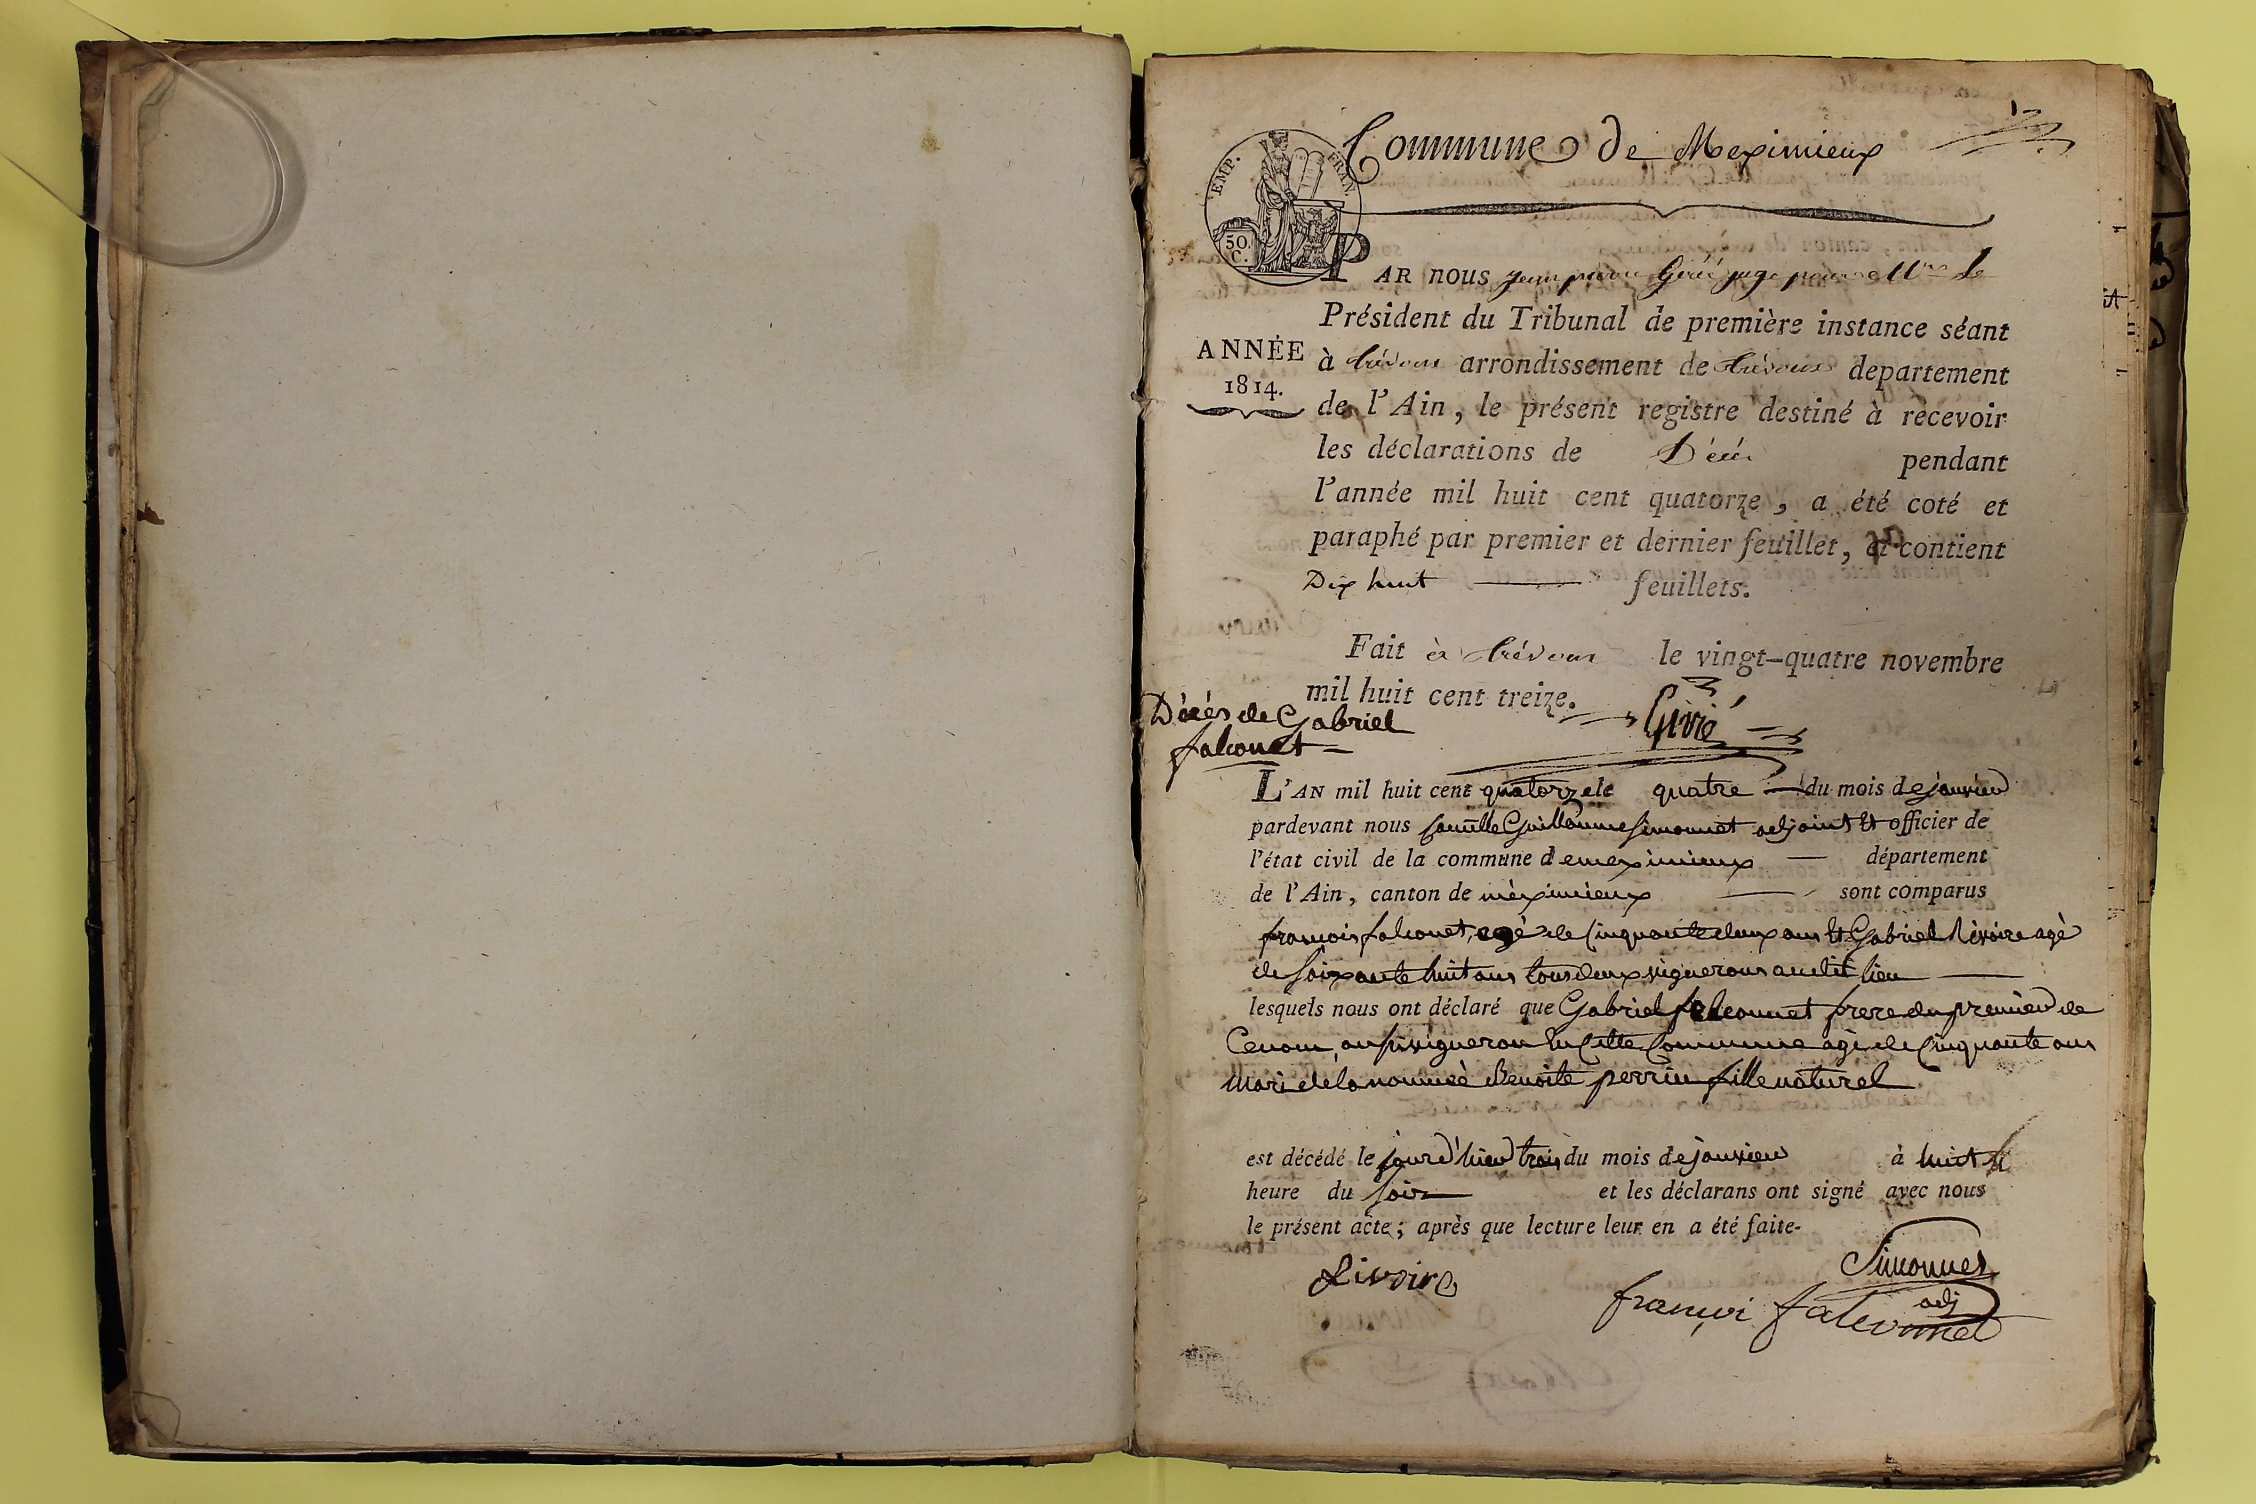 Commune de Meximieux
EMP. FRAN.
50.
C.
PAR nous jean pierre juge pour Mr le
Président du Tribunal de première instance séant
ANNÉE
1814.
à trévoux arrondissement de trévoux departement
de l'Ain, le présent registre destiné à recevoir
les déclarations de Décés pendant
l'année mil huit cent quatorze, a été coté et
paraphé par premier et dernier feuillet, et contient
Dix huit feuillets.
Fait à trévoux le vingt-quatre novembre
mil huit cent treize.
Décés de Gabriel
falconet
L'AN mil huit cent quatorze le quatre du mois de janvier
pardevant nous Guillaume Simonnet adjoint et officier de
l'état civil de la commune de meximieux département
de l'Ain, canton de mèximieux sont comparus
francois falconet, agé de Cinquante deux ans et Gabriel Rivoire agè
de soixante huit ans tous deux vignerons audit lieu
lesquels nous ont déclaré que Gabriel falconnet frere du premier de
Ce nom, aussi vigneron en Cette Commune agé de Cinquante ans
Mari de la nommeè Benoite perrin fille naturel
est décédé le jourd'hier trois du mois de janvier à huit
heure du soir et les déclarans ont signé avec nous
le présent acte; après que lecture leur en a été faite-
Rivoire
Simonnet
adj
françoi falconnet